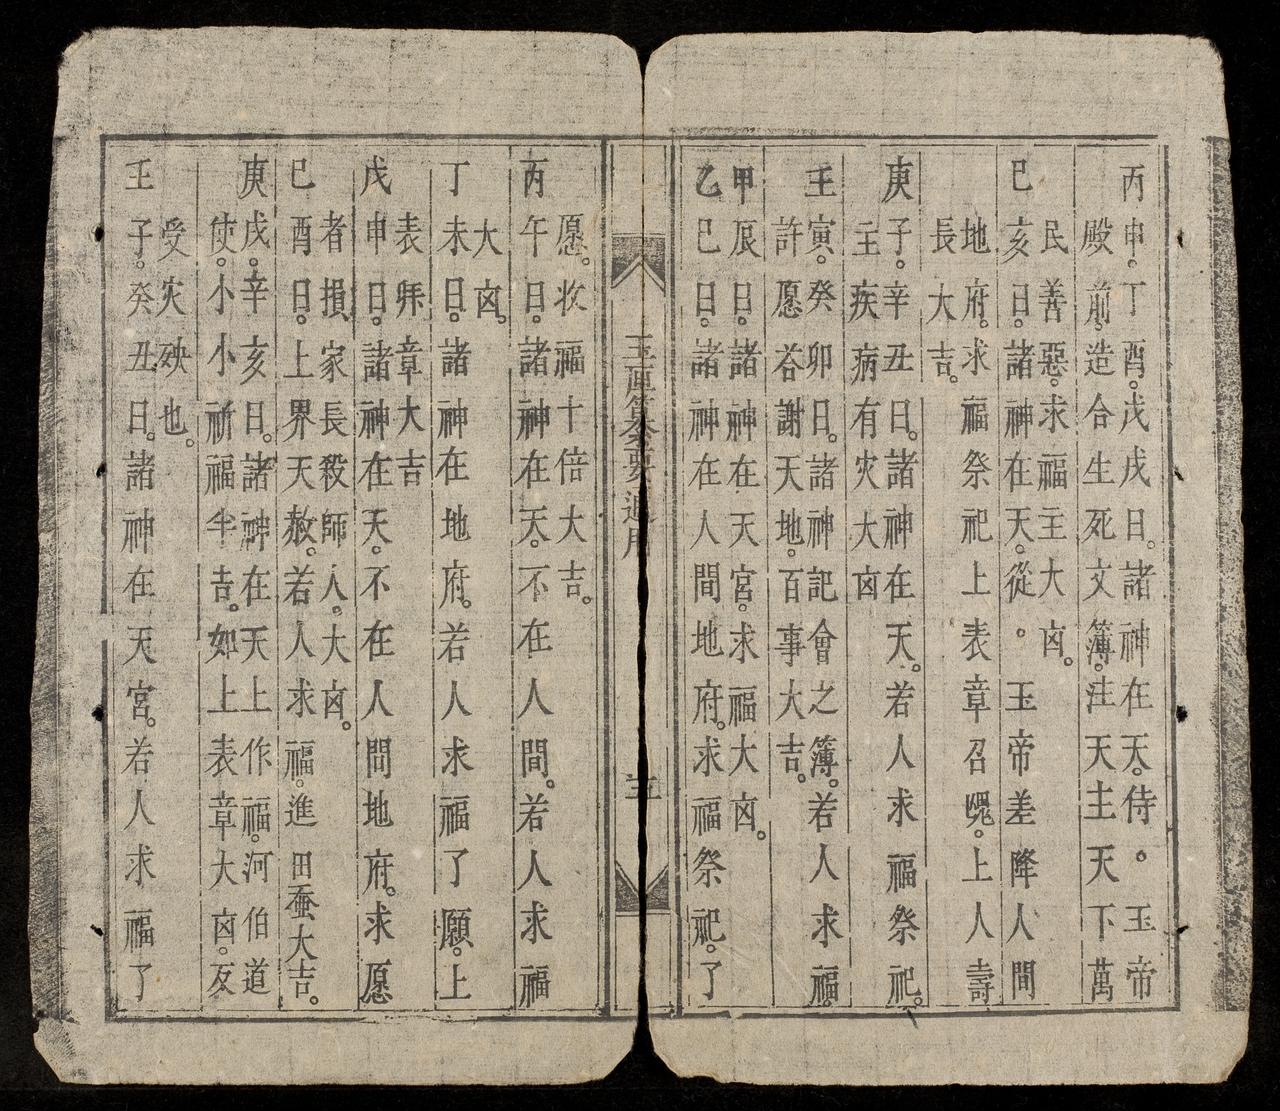 丙申。丁酉。戊戌日。諸神在天。侍。玉帝
殿前。造合生死文簿。注天主天下萬
民善惡。求福主大凶。
巳亥日。諸神在天。從。玉帝差降人間
地府。求福祭祀上表章召嗯。上人壽
長大吉。
庚子。辛丑日。諸神在天。若人求福祭祀。
主疾病有灾大凶
壬寅。癸卯日。諸神記會之簿。若人求福。
許愿荅謝天地。百事大吉。
甲辰日。諸神在天宮。求福大凶。
乙巳日。諸神在人間地府。求福祭祀。了
玉匣
五
愿。收福十倍大吉。
丙午日。諸神在天。不在人間。若人求福
大凶。
丁未日。諸神在地府。若人求福了願。上
表拜章大吉
戊申日。諸神在天。不在人間地府。求愿
者損家長殺師人。大凶。
巳酉日。上界天赦。若人求福。進田蚕大吉。
庚戌。辛亥日。諸神在天上作福。河伯道
使。小小祈福半吉。如上表章大凶。反
受灾殃也。
壬子。癸丑日。諸神在天宮。若人求福了